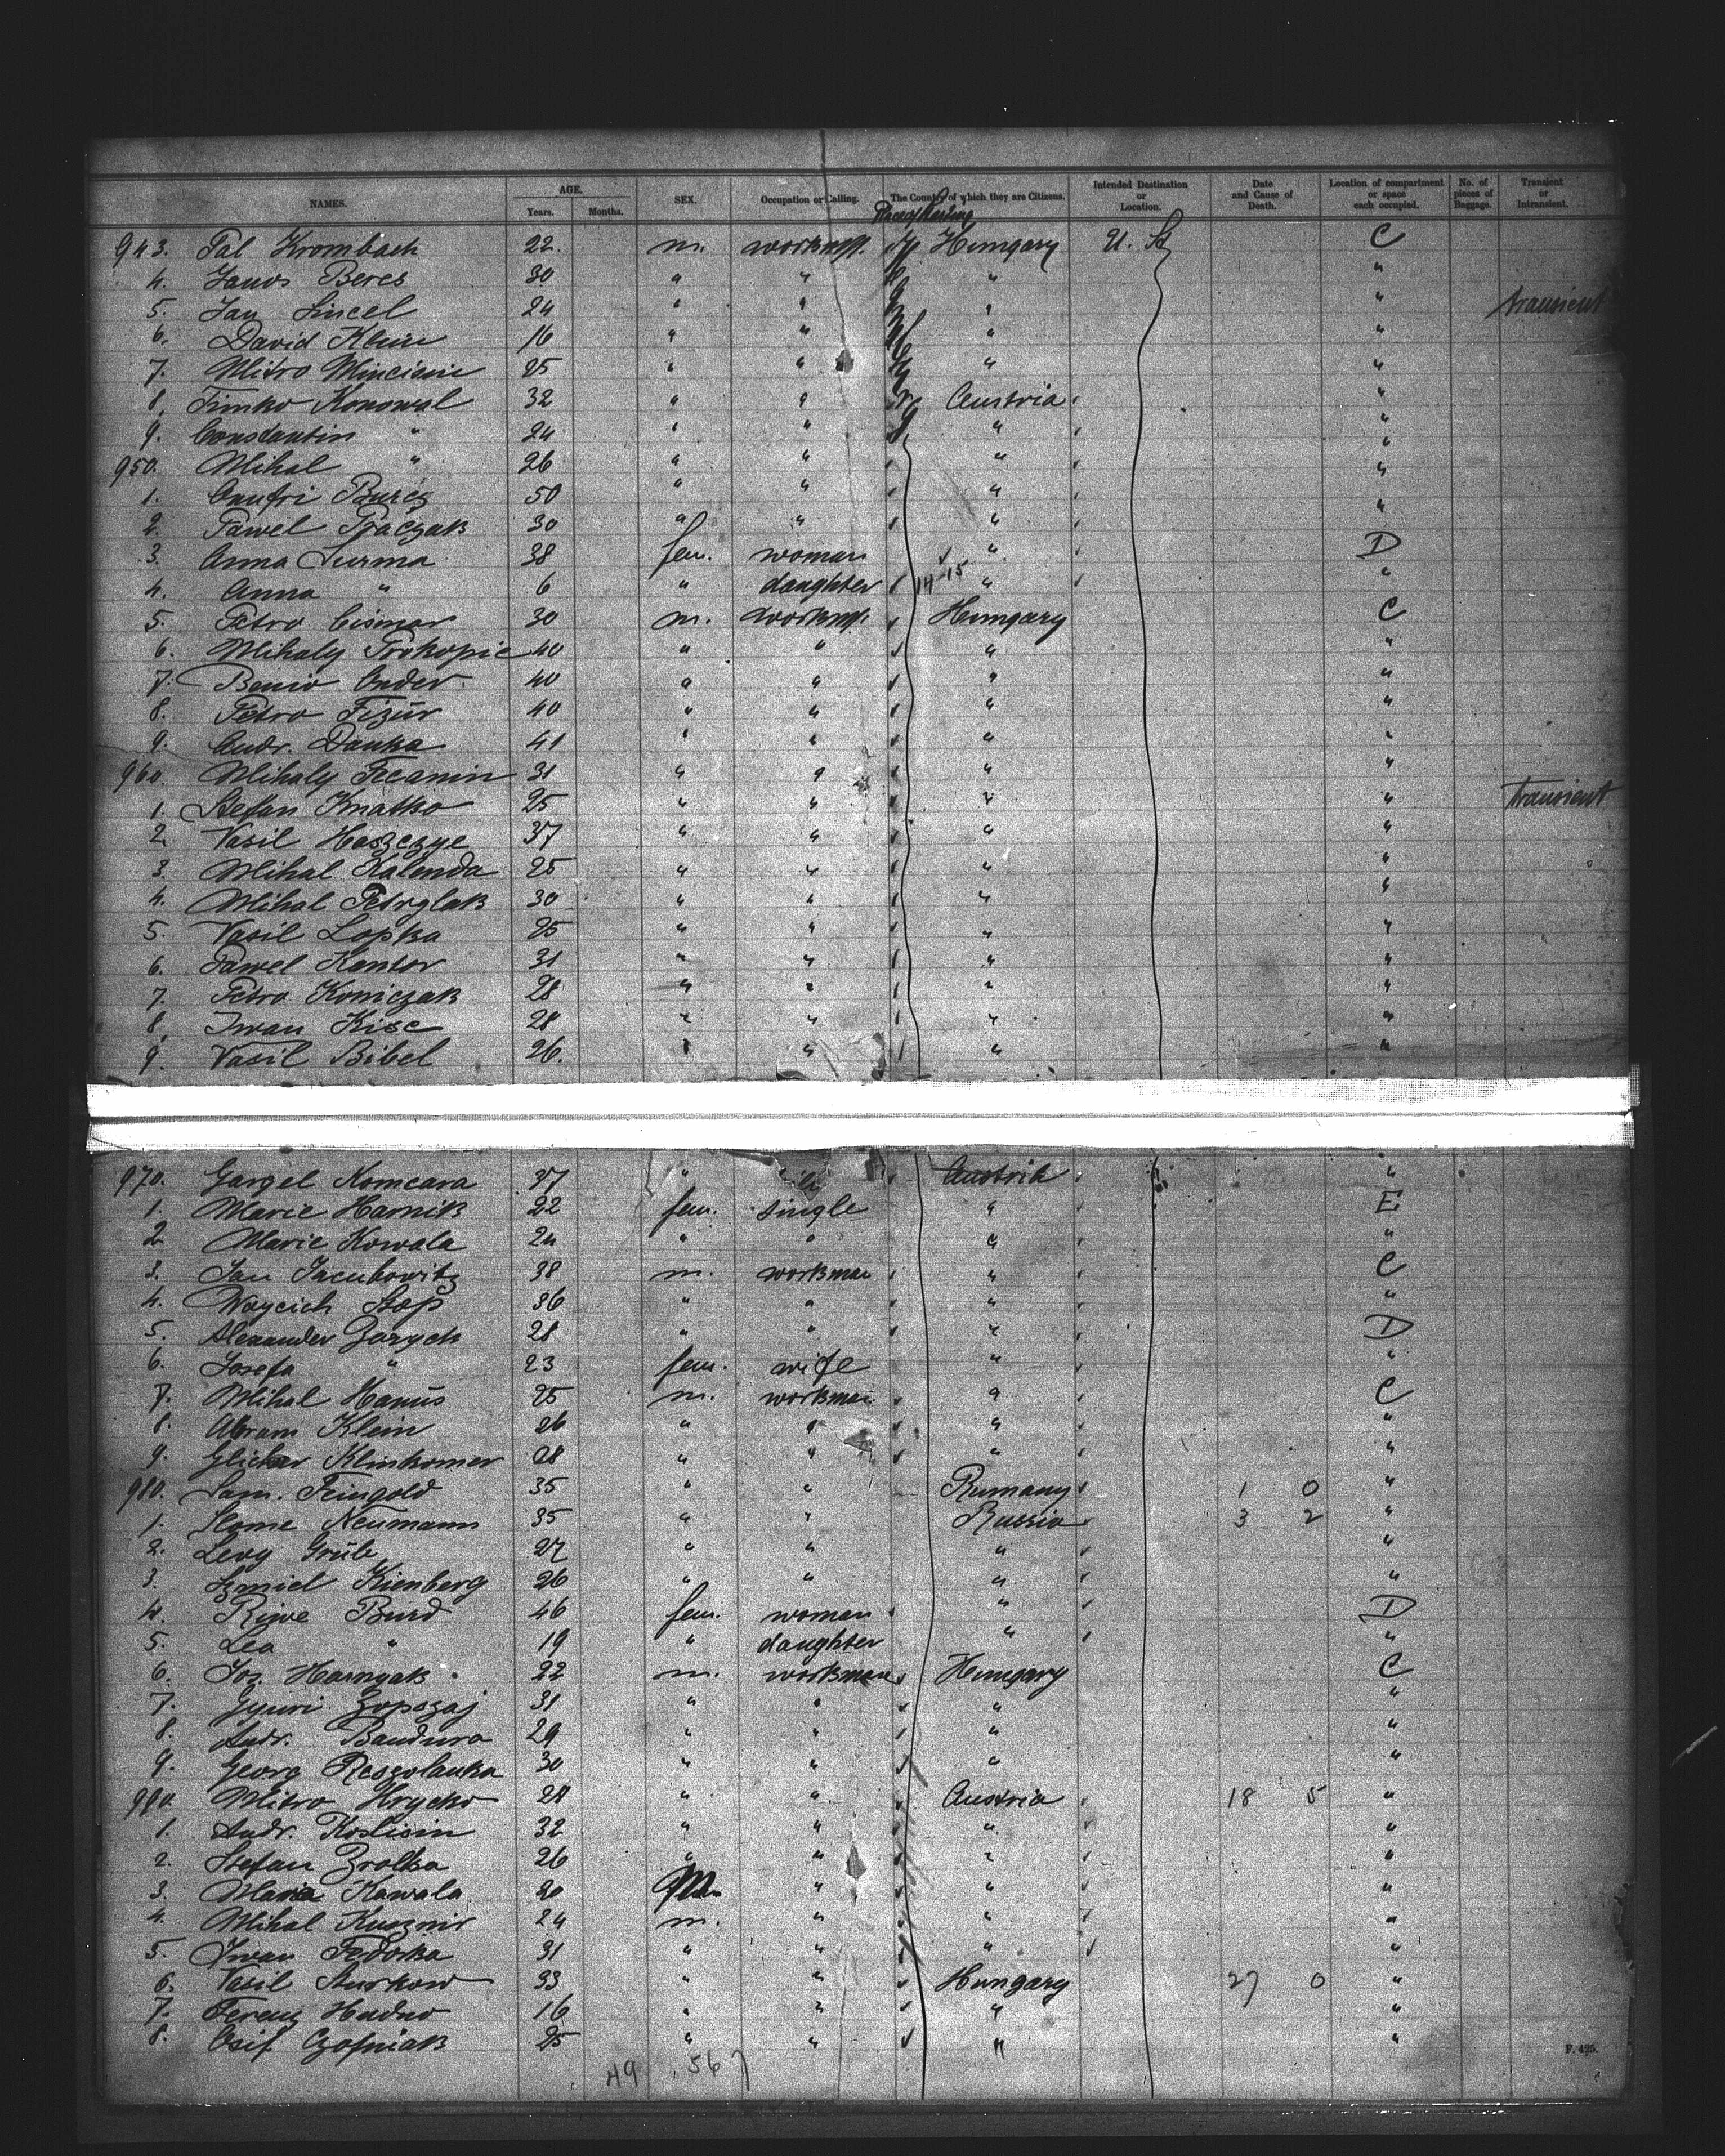 NAMES. AGE. Years. Months. SEX. Occupation or Calling. The Country of which they are Citizens. Intended Destination or Location. Date and Cause of Death. Location of compartment or space each occupied. No. of pieces of Baggage. Transient or Intransient.
943. Pal Krombach 22. m. workmn. Hungary U. St C
4. Janos Beres 30 " " " "
5. Jan Lincel 24 " " " " transient
6. David Klein 16 " " " "
7. Mitro Mincicin 25 " " " "
8. Timko Konowal 32 " " Austria "
9. Constantin " 24 " " " "
950. Mihal " 26 " " " "
1. Onufri Burcz 50 " " " "
2. Pawel Praczak 30 " " " "
3. Anna Surma 38 fem. woman " D
4. Anna " 6 " daughter 14-15 " "
5. Petro Cismar 30 m. workmn. Hungary C
6. Mihaly Prokopic 40 " " " "
7. Benio Onder 40 " " " "
8. Petro Fizur 40 " " " "
9. Andr. Danka 41 " " " "
960 Mihaly Fecanin 31 " " " "
1. Stefan Kmatko 25 " " " " transient
2. Vasil Haszczye 37 " " " "
3. Mihal Kalenda 25 " " " "
4. Mihal Petrylak 30 " " " "
5. Vasil Lopka 25 " " " "
6. Pawel Kantor 31 " " " "
7. Petro Koniczak 28 " " " "
8. Iwan Kisc 28 " " " "
9. Vasil Bibel 26. " " " "
970. Gargel Komcara 37 " " Austria "
1. Marie Harnik 22 fem. single " E
2 Marie Kowala 24 " " " "
3. Jan Jacubowitz 38 m. workman " C
4. Woycich Stop 36 " " " "
5. Alexander Zarych 28 " " " D
6. Josefa " 23 fem. wife " "
7. Mihal Hanus 25 m. workman " C
8. Abram Klein 26 " " " "
9. Klinkomer 28 " " " "
980. Sam. Feingold 35 " " Rumany 1 0 "
1. Slome Neumann 35 " " Russia 3 2 "
2. Levy Grub 27 " " " "
3. Szmiel Kienberg 26 " " " "
4. Riwe Burd 46 fem. woman " D
5. Lea " 19 " daughter " "
6. Jos. Harnyak 22 m. workman Hungary C
7. Gyuri Zopszaj 31 " " " "
8. Andr. Bandura 29 " " " "
9. Georg Reszolanka 30 " " " "
990. Mitro Hrycko 28 " " Austria 18 5 "
1. Andr. Koslisin 32 " " " "
2. Stefan Zrolka 26 " " " "
3. Maria Kawala 20 m. " " "
4. Mihal Kusznir 24 m. " " "
5. Iwan Fedorka 31 " " " "
6. Vasil Sturkow 33 " " Hungary 27 0 "
7. Ferenz Hudno 16 " " " "
8. Osif Czofniak 25 " " " "
F. 495.
49 56